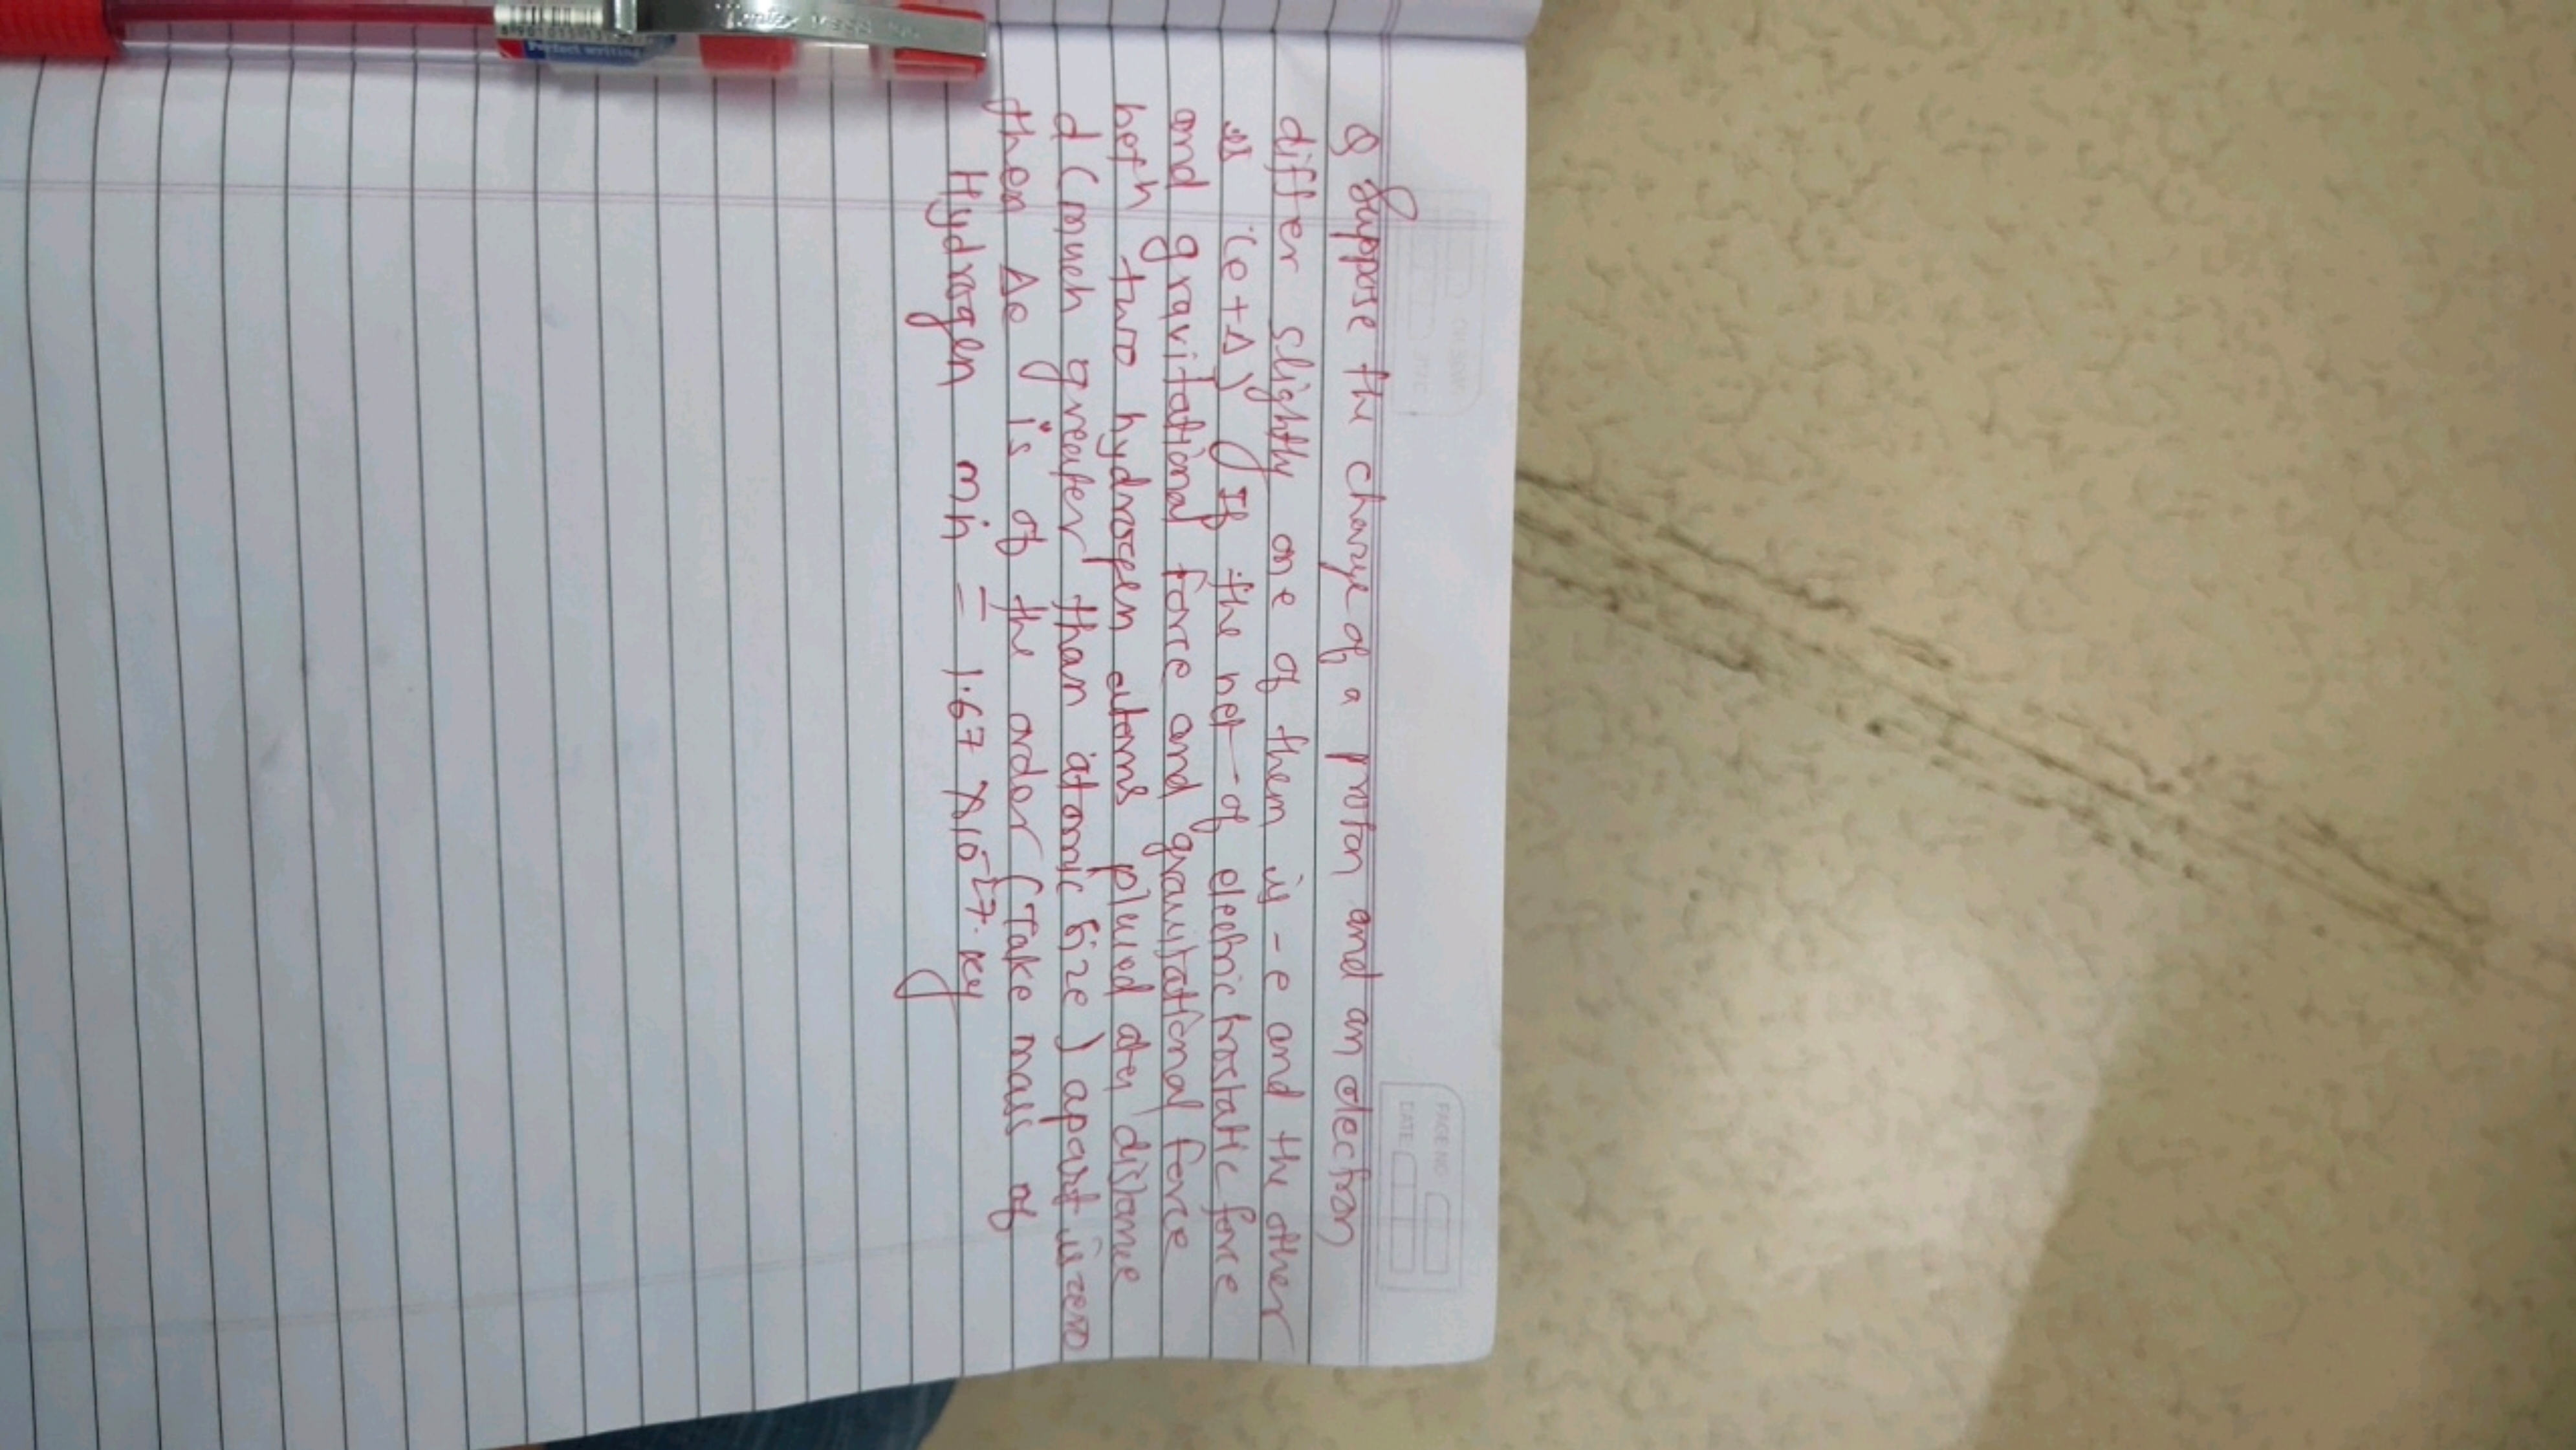 Q Suppose the charge of a proton and an electron
differ slightly one of them is - e and the other
is (e+Δ) If the net of electric trostatic force
and gravitational force and gravitational force
beth two hydrogen atoms plued at distance
d (much greater than atomic size) apart is zero
then Δe is of the order (Take mass of
Hydrogen mh = 1.67 × 10⁻²⁷ kg
PAGE NO.
DATE
Perfect writing